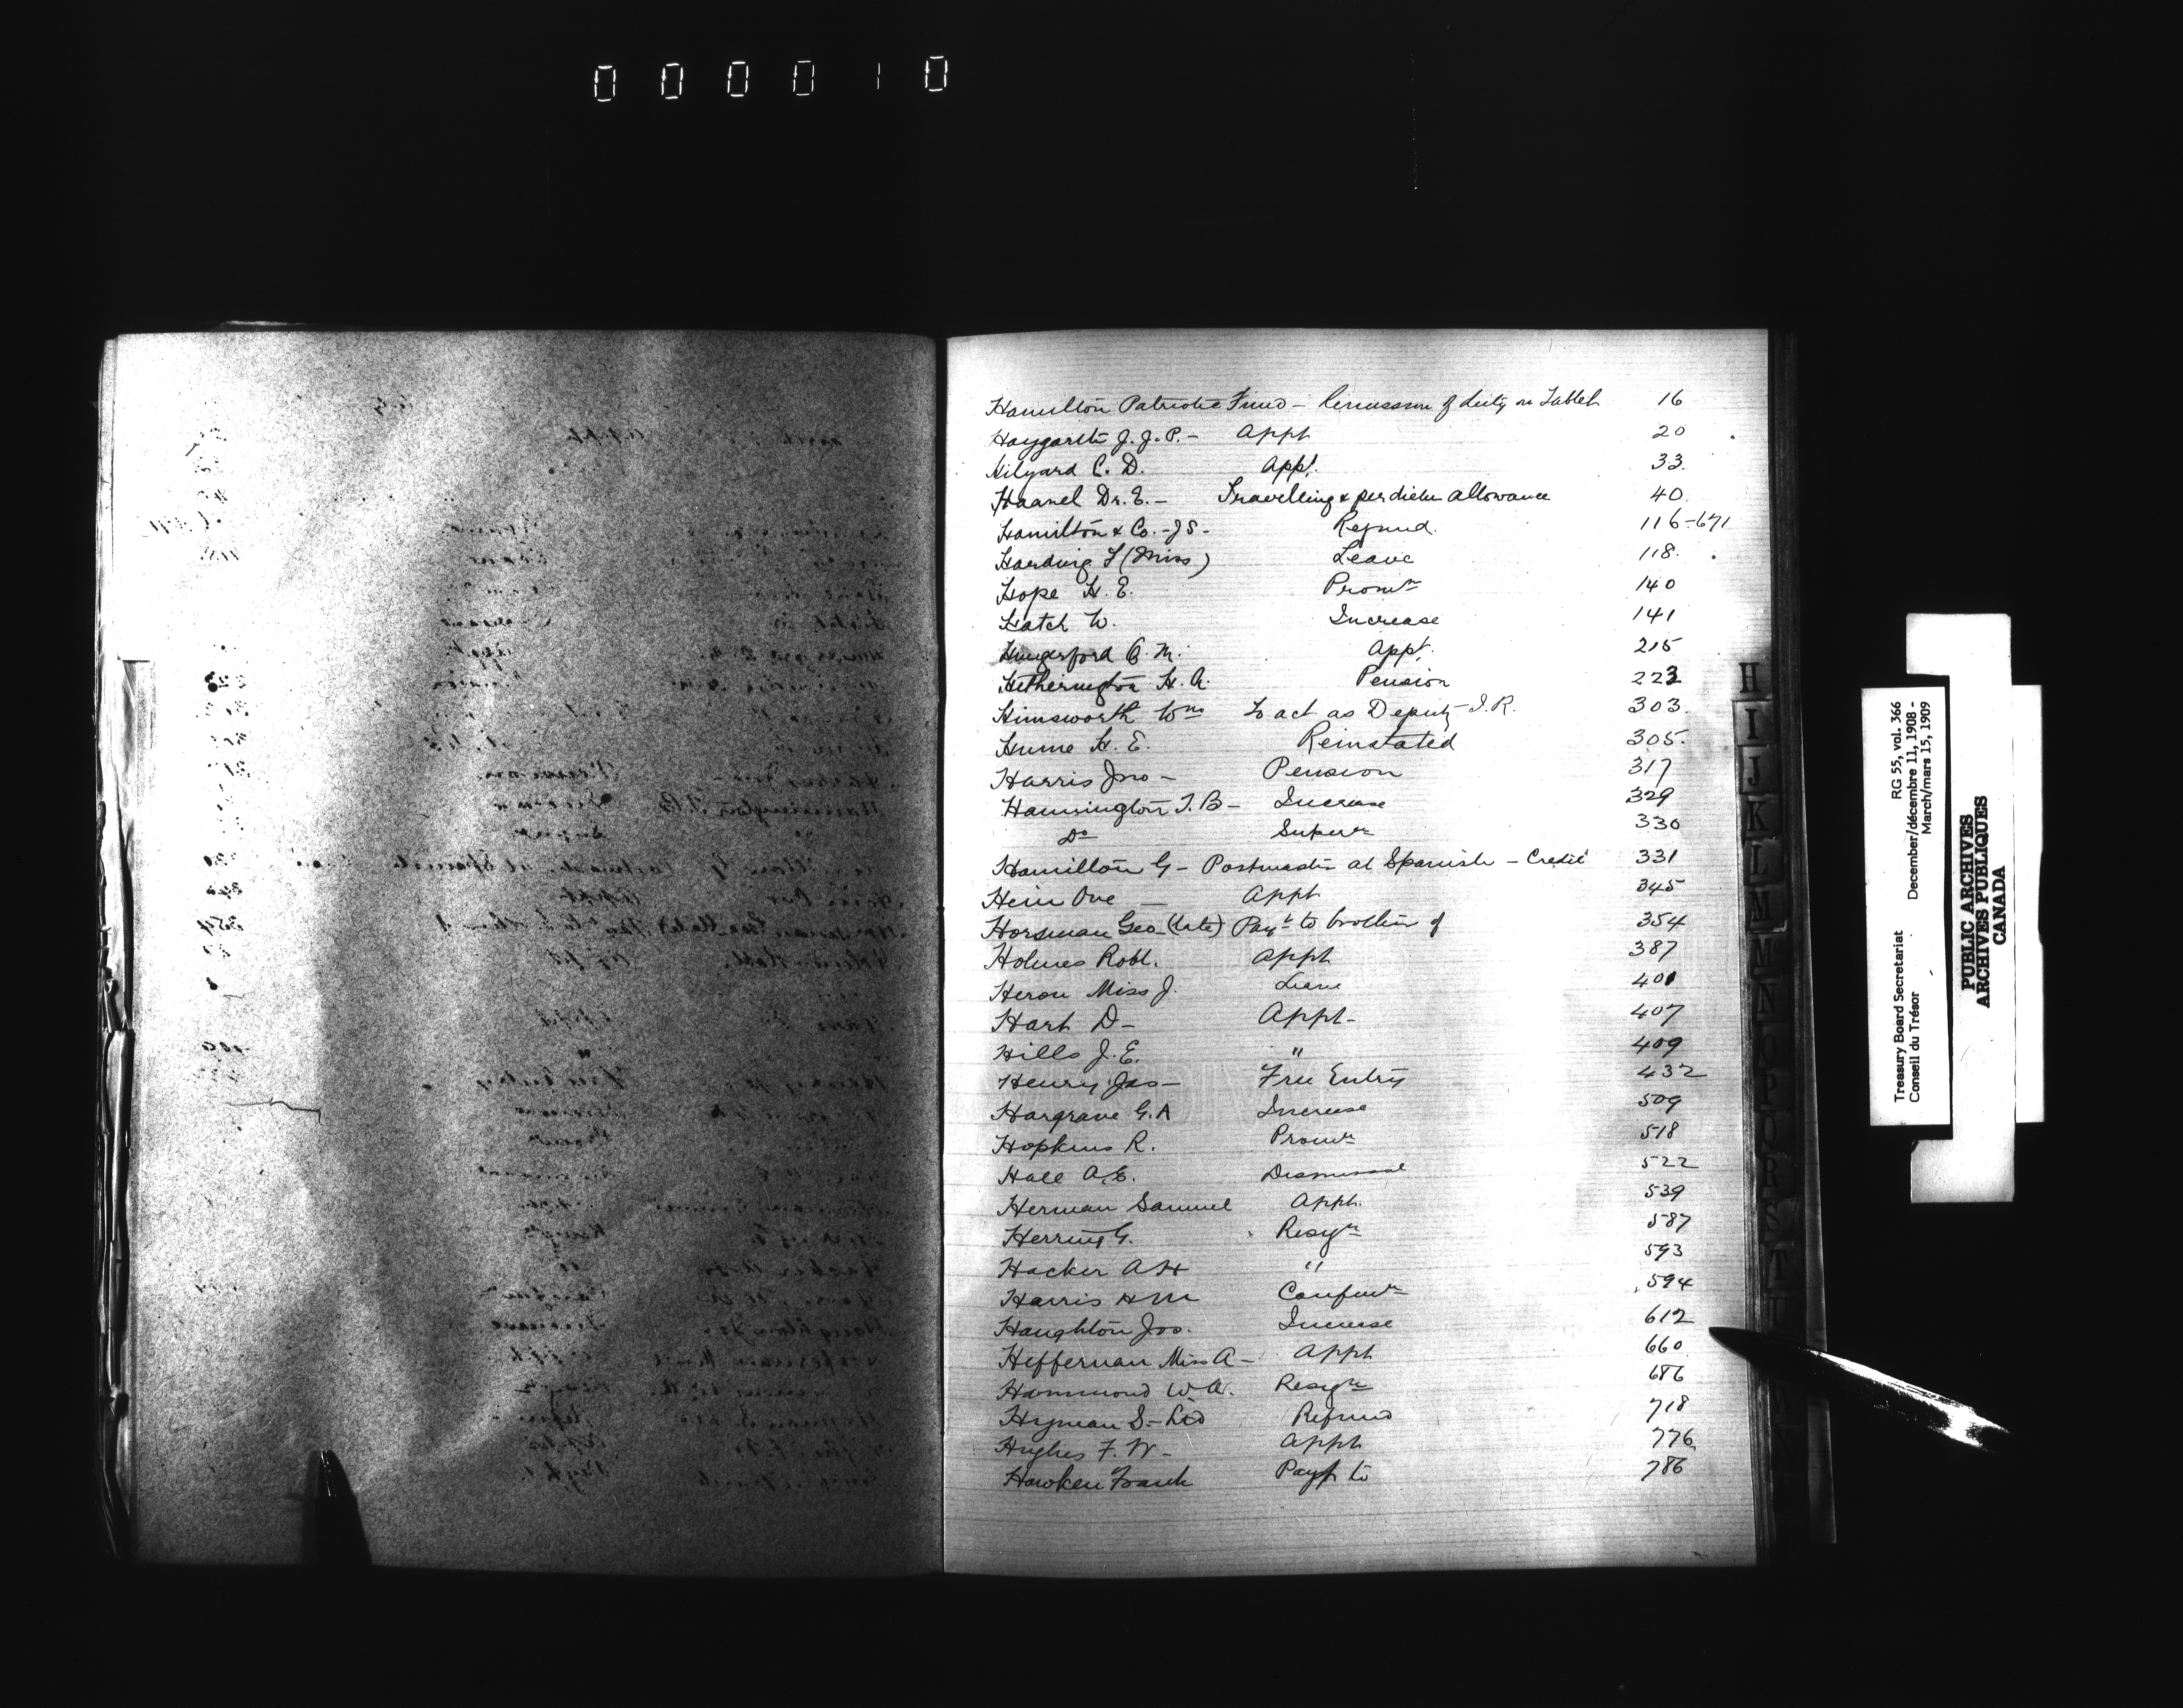 000010
Hamilton Patriotic Fund - Remission of duty on Tablet 16
Haygarth J. J. P. - Appt 20
Hilyard C. D. Appt. 33.
Haanel Dr. E. - Travelling & per diem allowance 40.
Hamilton & Co. - J S - Refund. 116-671
Harding (Miss) Leave 118.
Hope H. E. Promn 140
Hatch W. Increase 141
Hungerford A. M. Appt. 215
Hetherington H. A. Pension 223
Himsworth Wm To act as Deputy I. R. 303.
Hume H. E. Reinstated 305.
Harris Jno - Pension 317
Hannington T. B - Increase 329
Do 330
Hamilton G - Postmaster at Spanish - Credit 331
Hein Ove - Appt 345
Horsman Geo - (late) Payt to brother of 354
Holmes Robt. Appt 387
Heron Miss J. Leave 401
Hart D - Appt - 407
Hills J. E. " 409
Henry Jas - Free Entry 432
Hargrave G. A Increase 509
Hopkins R. Promn 518
Hall A. E. Dismissal 522
Herman Samuel Appt. 539
Herring G. Resgn 587
Hacker A H " 593
Harris H M Confirn 594
Haughton Jos. Increase 612
Heffernan Miss A - Appt 660
Hammond W. A. Resgn 686
Hyman S - Ltd Refund 718
Hughes F. W - Appt 776
Hawken Frank Payt to 786
H
I
J
K
L
M
N
O
P
R
S
T
Treasury Board Secretariat RG 55, vol. 366
Conseil du Trésor December/décembre 11, 1908 -
March/mars 15, 1909
PUBLIC ARCHIVES
ARCHIVES PUBLIQUES
CANADA